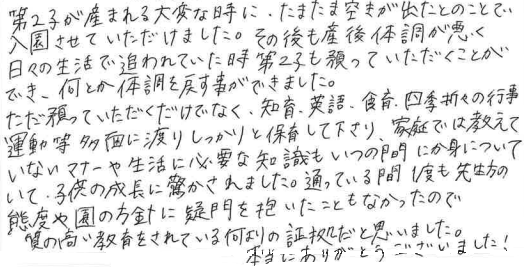 第2子が産まれる大変な時に、たまたま空きが出たとのことで
入園させていただけました。その後も産後体調が悪く
日々の生活で追われていた時第2子も預っていただくことが
でき、何とか体調を戻す事ができました。
ただ預っていただくだけでなく、知育、英語、食育、四季折々の行事
運動等多面に渡りしっかりと保育して下さり、家庭では教えて
いないマナーや生活に必要な知識もいつの間にか身について
いて、子供の成長に驚かされました。通っている間1度も先生方の
態度や園の方針に疑問を抱いたこともなかったので
質の高い教育をされている何よりの証拠だと思いました。
本当にありがとうございました！